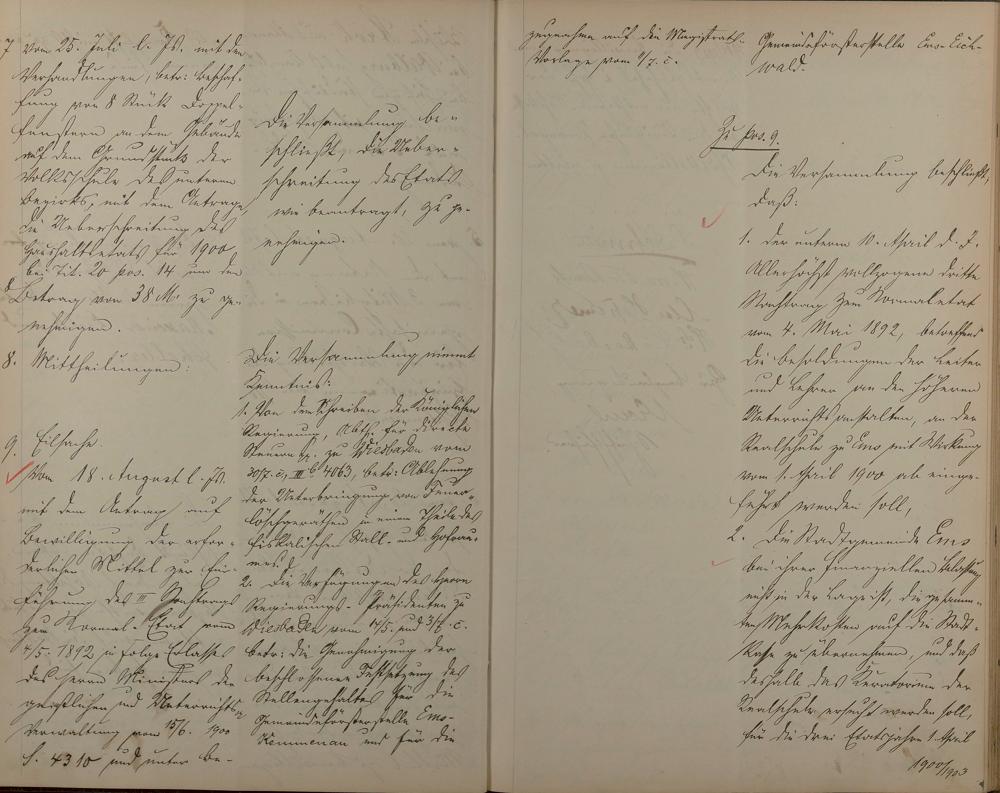 7 vom 25. Juli l. Js. mit den
Verhandlungen, betr: Beschaf-
fung von 8 Stück Doppel-
fenstern an dem Gebäude
auf dem Grundstück der
Volksschule des unteren
Bezirks, mit dem Antrage,
die Ueberschreitung des
Haushaltsetats für 1900
bei Tit. 20 pos. 14 um den
Betrag von 38 M. zu ge-
nehmigen.
8. Mittheilungen:
9. Eilsache.
Vom 18. August l. Js.
mit dem Antrag auf
Bewilligung der erfor-
derlichen Mittel zur Ein-
führung des III Nachtrags
zum Normal-Etat vom
4/5. 1892 in Folge Erlasses
des Herrn Ministers der
geistlichen und Unterrichts-
Verwaltung vom 15/6. 1900
S. 4310 und unter Be-
Die Versammlung be-
schließt, die Ueber-
schreitung des Etats
wie beantragt, zu ge-
nehmigen.
Die Versammlung nimmt
Kenntnis:
1. Von dem Schreiben der Königlichen
Regierung, Abth. für directe
Steuern zu Wiesbaden vom
30/7. c., III b 4063, betr: Ablehnung
der Unterbringung von Feuer-
löschgeräthen in einem Theile des
fiskalischen Stall- und Hofrau-
mes.
2. Die Verfügungen des Herrn
Regierungs-Präsidenten zu
Wiesbaden vom 17/5. und 3/7. c.
betr: die Genehmigung der
beschlossenen Festsetzung des
Stellengehaltes für die
Gemeindeförsterstelle Ems-
Kemmenau und für die
zugnahme auf die Magistrats-
Vorlage vom /7. c.
Gemeindeförsterstelle Ems-Eich-
wald.
Zu pos. 9.
Die Versammlung beschließt,
daß:
1. der unterm 10. April d. J.
Allerhöchst vollzogene dritte
Nachtrag zum Normaletat
vom 4. Mai 1892, betreffend
die Besoldungen der Leiter
und Lehrer an den höheren
Unterrichtsanstalten, an der
Realschule zu Ems mit Wirkung
vom 1. April 1900 ab einge-
führt werden soll,
2. Die Stadtgemeinde Ems
bei ihrer finanziellen Belastung
nicht in der Lage ist, die gesamm-
ten Mehrkosten auf die Stadt-
kasse zu übernehmen, und daß
deshalb das Kuratorium der
Realschule ersucht werden soll,
für die drei Etatsjahre 1. April
1900/1903